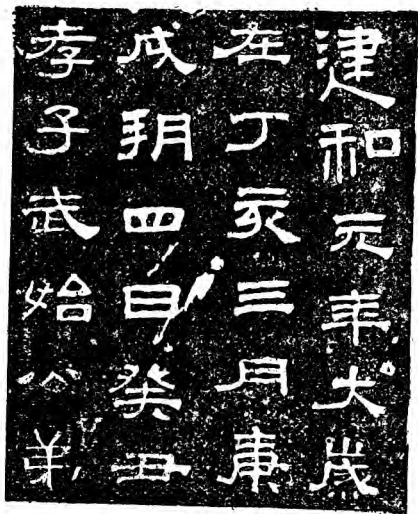 建和元年大歲
在丁亥三月庚
戌朔四日癸丑
孝子武始公弟